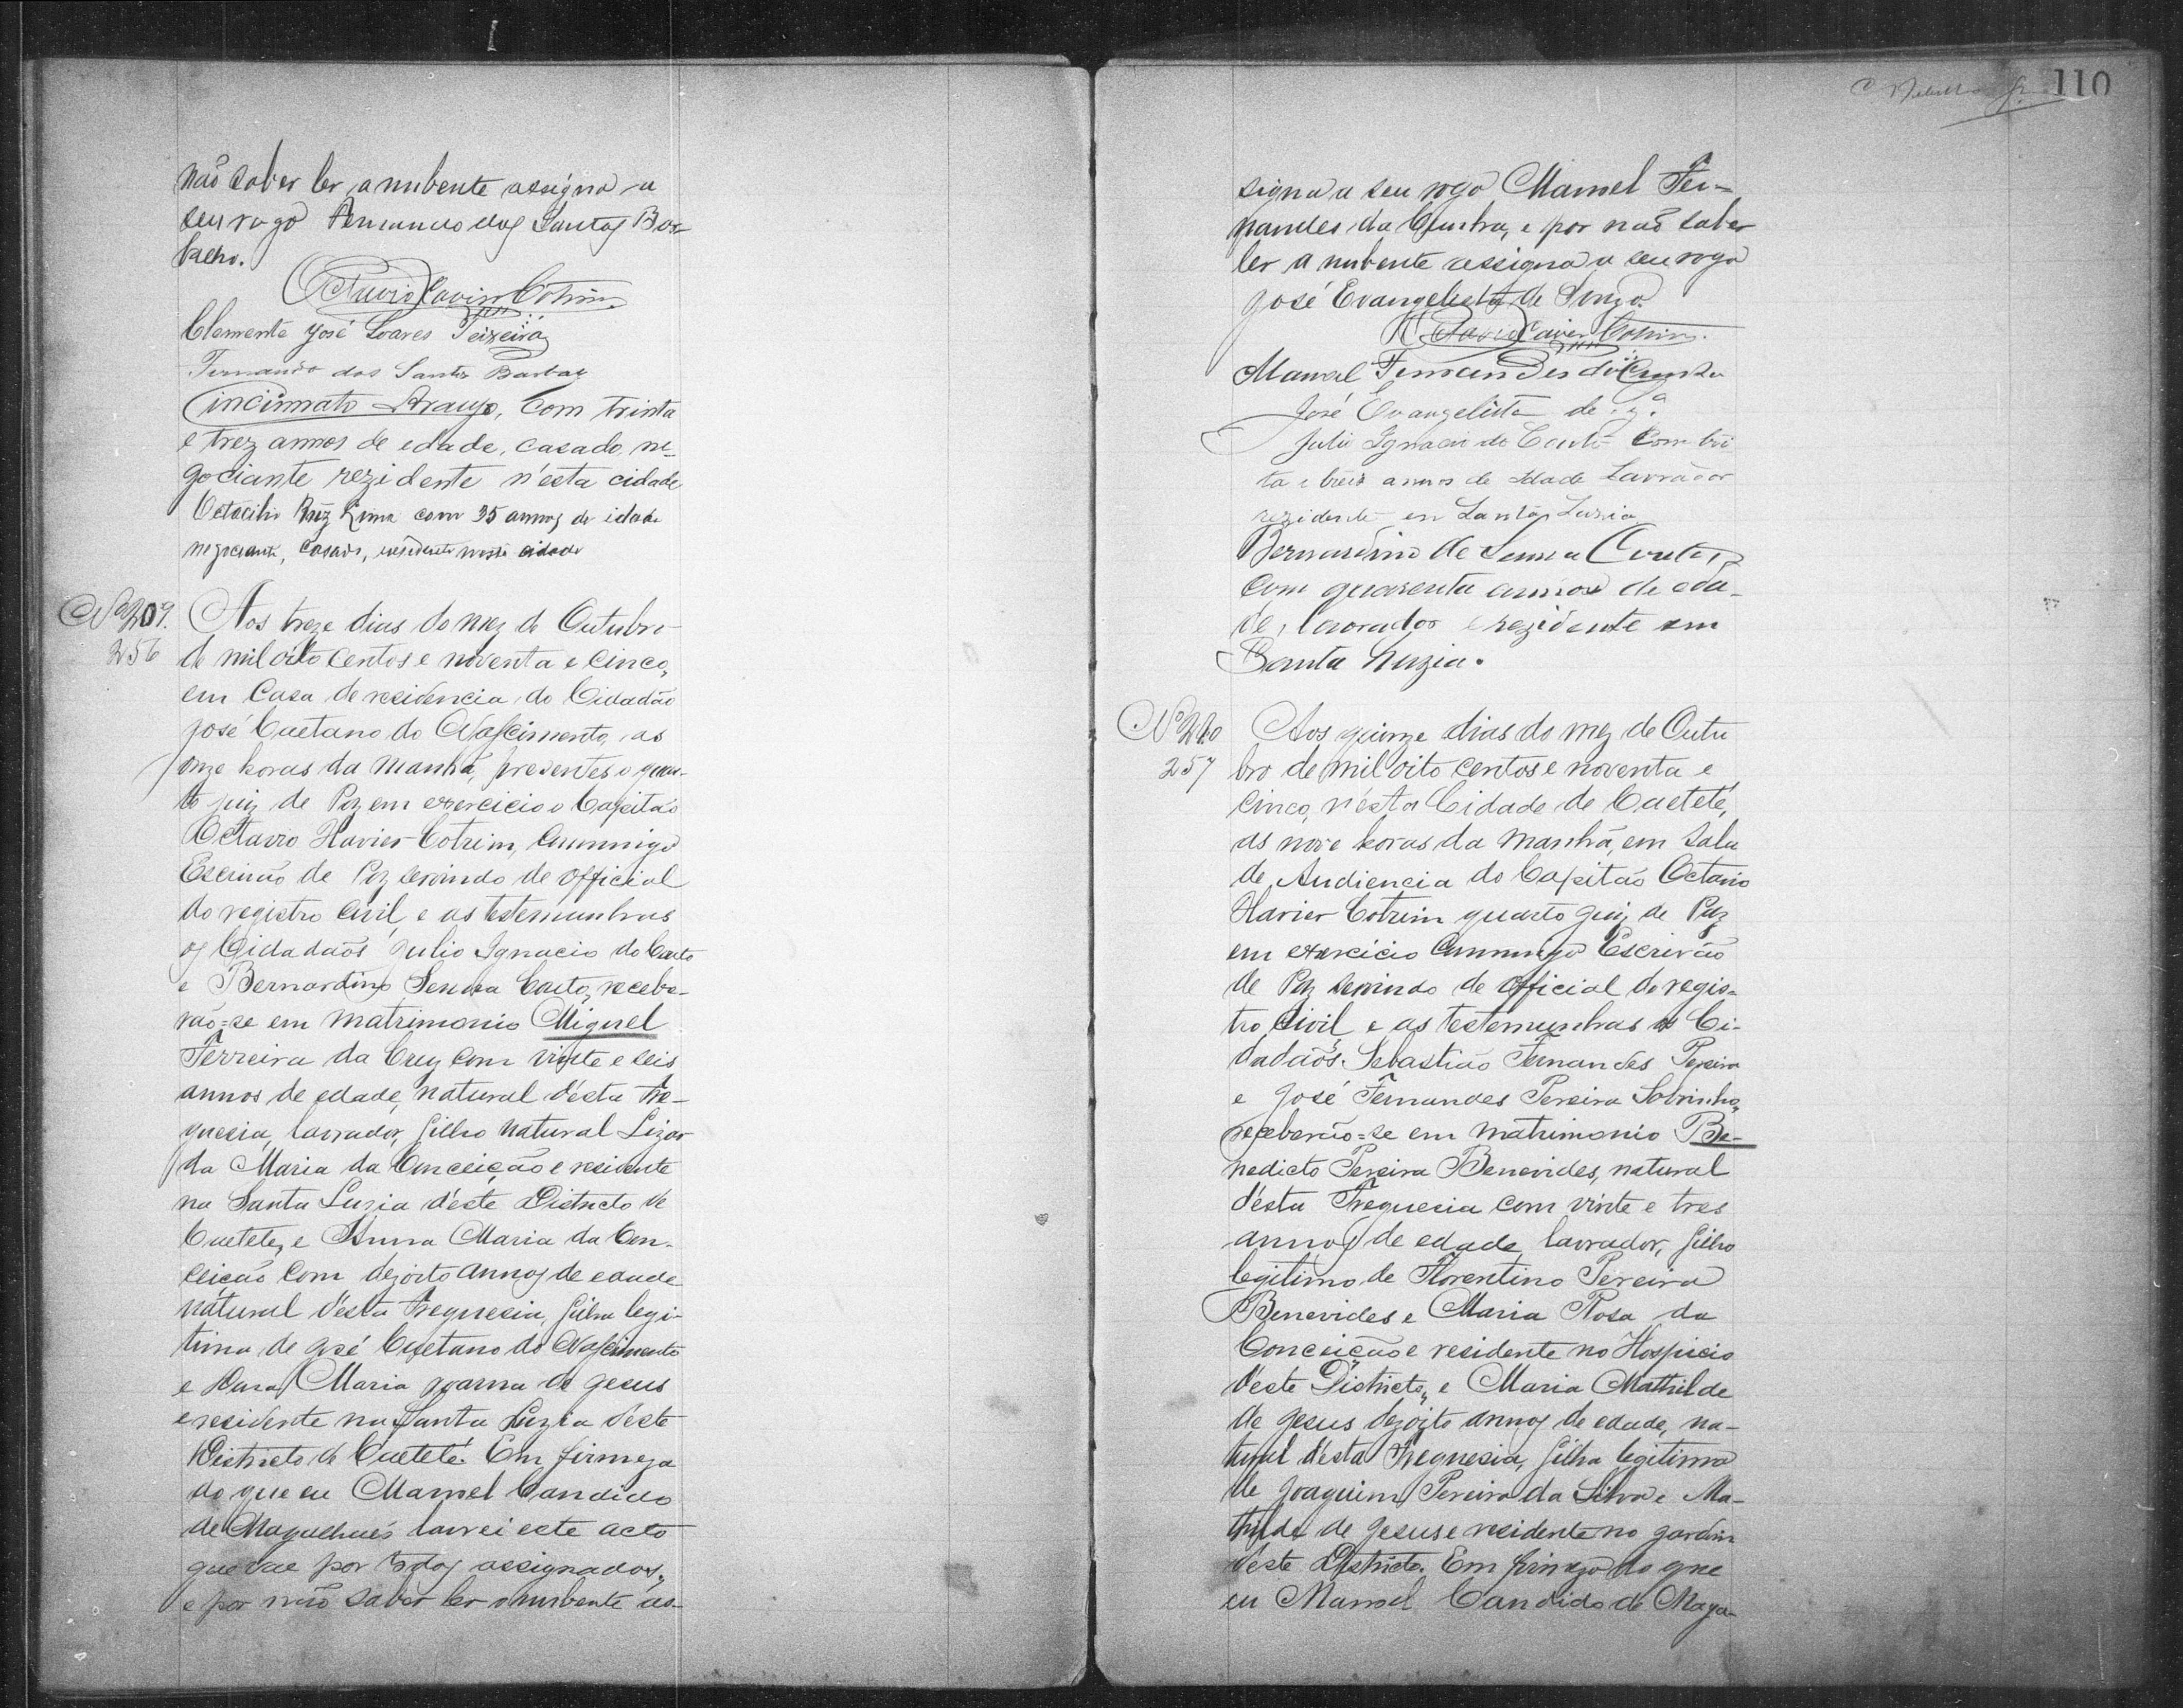 não saber ler a nubente assigna a
seu rogo Fernando dos Santos Bar-
balho.
Octavio Xavier Cotrim
Clemente José Soares Teixeira
Fernando dos Santos Barbal
Cincinnato Araujo, com trinta
e trez annos de edade, casado, ne-
gociante rezidente n'esta cidade
Octacilio Lima com 35 annos de idade
negociante, casado, residente nesta cidade
Nº 209. Aos treze dias do mez de Outubro
256 de mil oito centos e noventa e cinco,
em Casa de residencia do Cidadão
José Caetano do Nascimento, as
onze horas da manhã, presentes o quar-
to juiz de Paz em exercicio o Capitão
Octavio Xavier Cotrim, Commigo
Escrivão de Paz servindo de official
do registro Civil, e as testemunhas
os Cidadãos Julio Ignacio do Couto
e Bernardino Senna Couto, recebe-
rão-se em matrimonio Miguel
Ferreira da Cruz com vinte e seis
annos de edade, natural d'esta Fre-
guesia, lavrador, filho natural Lizar
da Maria da Conceição e residente
na Santa Luzia d'este Districto de
Caeteté, e Anna Maria da Con-
ceição com dezoito annos de edade
natural d'esta Freguesia, filha legi-
tima de José Caetano do Nascimento
e Maria Joanna de Jesus
e residente na Santa Luzia d'este
Districto de Caeteté. Em firmeza
do que eu Manoel Candido
de Magalhães lavrei este acto
que vae por todos assignados,
e por não saber ler o nubente as-
110
signa a seu rogo Manoel Fer-
nandes da Cunha, e por não saber
ler a nubente assigna a seu rogo
José Evangelista de Souza.
Octavio Xavier Cotrim.
Manoel Fernandes da Cunha
José Evangelista de
Julio Ignacio do Couto Com trin
ta e treis annos de Idade Lavrador
rezidente en Santa Luzia
Bernardino de Senna Couto,
Com quarenta annos de eda-
de, lavrador e rezidente em
Santa Luzia.
Nº 210 Aos quinze dias do mez de Outu
257 bro de mil oito centos e noventa e
cinco, n'esta Cidade de Caeteté,
as nove horas da manhã, em Sala
de Audiencia do Capitão Octavio
Xavier Cotrim quarto juiz de Paz
em exercicio Commigo Escrivão
de Paz servindo de official do regis-
tro Civil, e as testemunhas os Ci-
dadãos Sebastião Fernandes Pereira
e José Fernandes Pereira Sobrinho,
receberão-se em matrimonio Be-
nedicto Pereira Benevides, natural
d'esta Freguesia com vinte e tres
annos de edade, lavrador, filho
legitimo de Florentino Pereira
Benevides e Maria Rosa da
Conceição e residente no Hospicio
d'este Districto, e Maria Mathilde
de Jesus dezoito annos de edade, na-
tural d'esta Freguesia, filha legitima
de Joaquim Pereira da Silva e Ma-
thilde de Jesus e residente no Jardim
d'este Districto. Em firmeza do que
eu Manoel Candido de Maga-